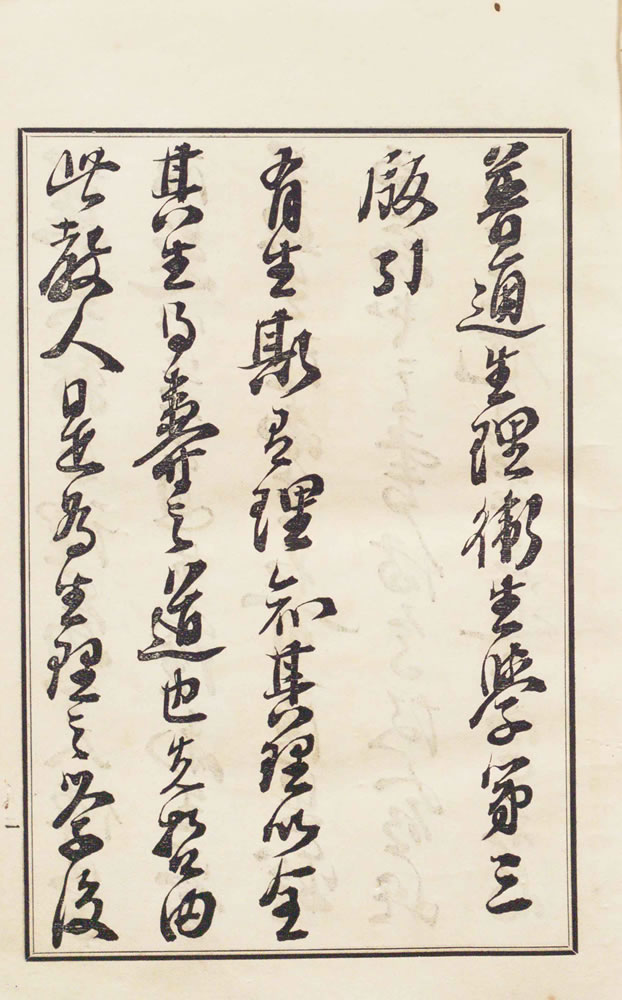 普通生理衛生學第三
版引
有生斯有理知其理以全
其生得壽之道也先哲由
此教人是為生理之學後
一